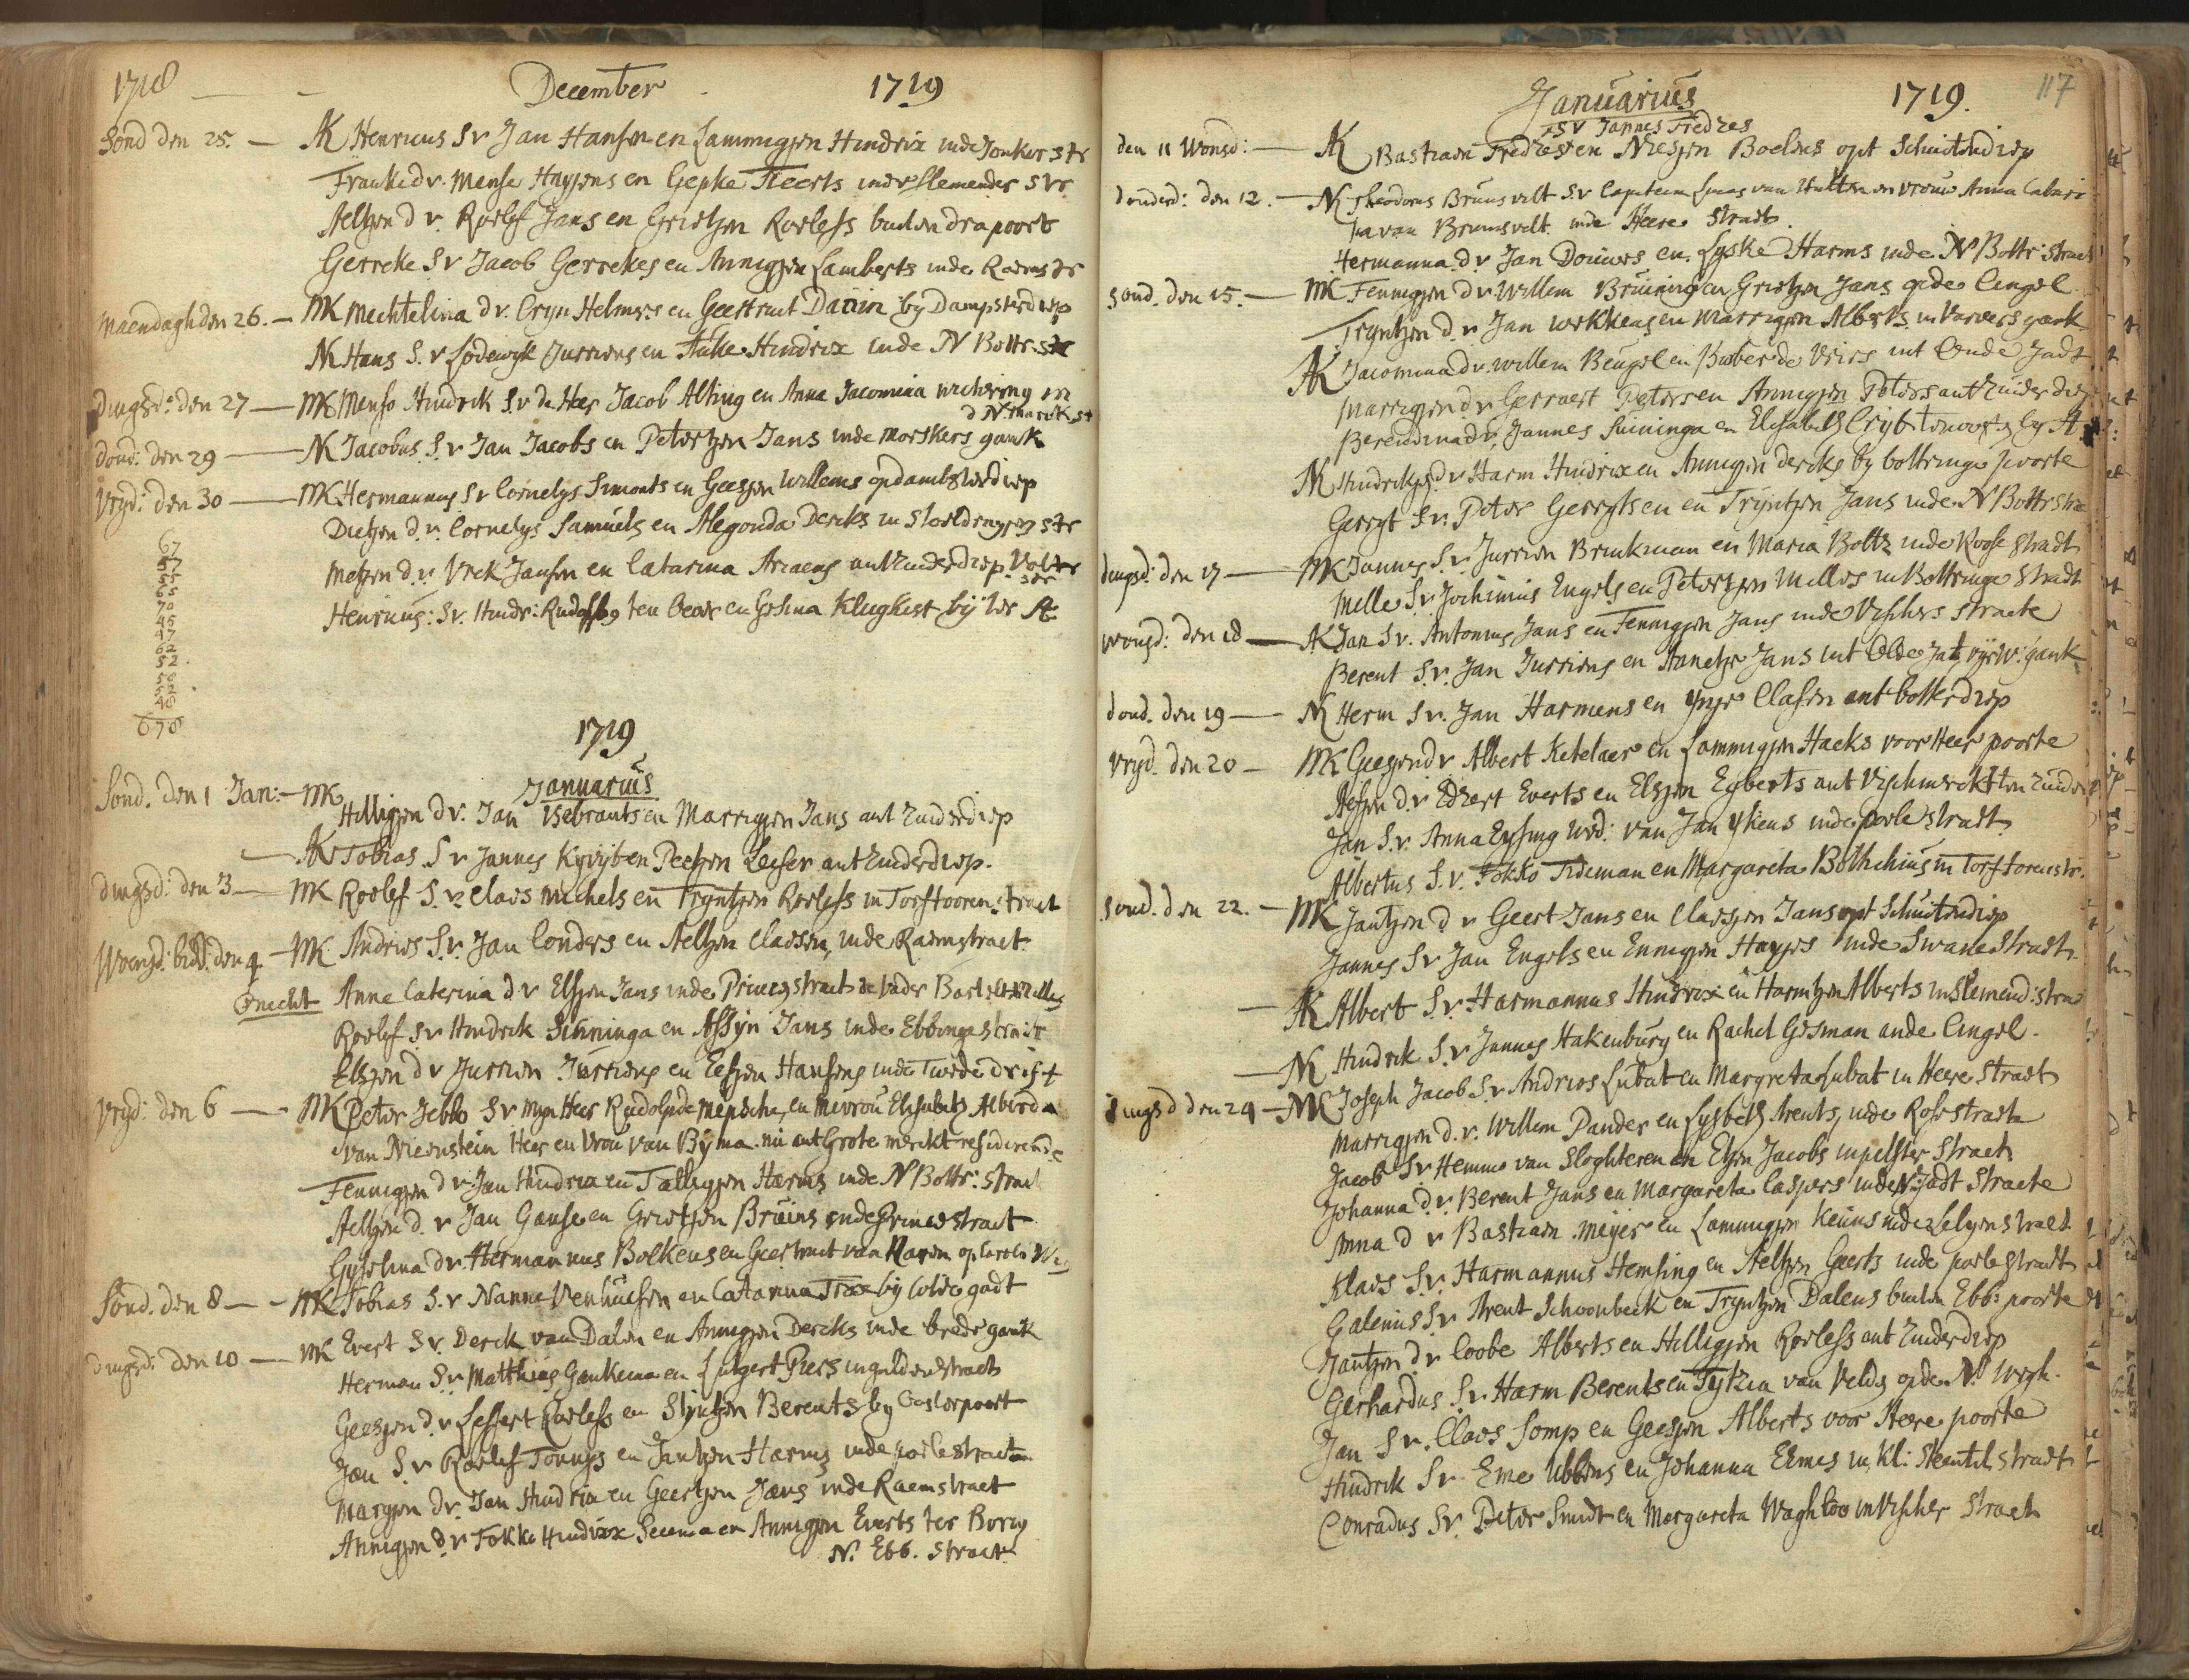 1718 — - December - 1719
Sond den 25. — AK Henricus S.v Jan Hansen en Lammigjen Hindrix inde Jonker str
Frauke d.v. Mense Hayjens en Gepke Tieerts inde
Aeltjen d v. Roelef Jans en Grietjen Roelefs buiten dra poort
Gerreke S.v Jacob Gerrekes en Annigjen Lamberts inde Raems str
Maendagh den 26. — MK Mechtelina d v. Cryn Helmers en Geertruit by Dampsterdiep
NK Hans S. v Lodewyk Jurriens en Auke Hindrix inde N Bottr. str
Dingsd: den 27 — MK Menso Hindrick S.v de Heer Jacob Alting en Anna Jacomina Wichering in
d N marck st
dond: den 29 — NK Jacobus S.v Jan Jacobs en Petertjen Jans inde Morskers gank
Vryd: den 30 — MK Hermannus S.v Cornelys Simonts en Geesjen Willems op dambsterdiep
Dietjen d.v. Cornelys Samuels en Alegonda Dercks in str
Metjen d.v. Vrek Jansen en Catarina Ariaens ant Zuiderdiep
str
Henricus: S.v. Hindr: Rudolfs ten Cear en Gesina Klughist by der A
67
57
55
65
70
45
47
62
52.
58
52
48
678
1719
Januariùs
Sond. den 1 Jan: — MK
Hilligjen d v. Jan Ysebrants en Marrigjen Jans ant Zuiderdiep
— AK Tobias S v Jannes en Peetjen Leeser ant Zuiderdiep.
dingsd: den 3 — MK Roelef S.v. Claes Michels en Tryntjen Roelefs in Torftooren straet
Woensd: bedd: den 4 — MK Andries S.v. Jan Conders en Aeltjen Claessen, inde Raemstraet
Onecht Anne Caterina d v Elsjen Jans inde Princenstraet de vader Bartelt Willes
Roelef S.v Hindrick Sinninga en Assyn Jans inde Ebbinge straete
Elsjen d v Jurrien Jurriens en Eefjen Hansens inde Twede drift
Vryd: den 6 — MK Peter Jebbo S v Myn Heer Rudolp de Mepsche, en Mevrou Elisabeth Alberda
van Nienstein Heer en Vrou van Byma nu ant Grote merckt residerende
Fennigjen d v Jan Hindrix en Talligjen Harms inde N Bottr: straet
Aeltjen d. v Jan Gansen en Grietjen Bruins inde Prince straet
Gesselina dv. Hermannus Bolkens en Geertruit van op Carolie We
Sond. den 8 — MK Tobias S.v Nanne Venhuisen en Catarina by Colde gadt
MK Evert S.v. Derck van Dalen en Annigjen Dercks inde brede gank
dingsd: den 10 — Herman S.v Matthias Gankema en Lutgert Piers in gulden straet
Geesjen d.v Leffert Roelefs en Styntjen Berents by Oosterpoort
Jan S.v Roelef Tonnys en Jantjen Harms inde poele straet
Margjen dv. Jan Hindrix en Geertjen Jans inde Raemstraet
Annigjen d.v Fokke Hindrix en Annigjen Everts ter Borg
N. Ebb. straet
Januariùs 1719. 117
S v Jannes Fredres
den 11 Wonsd: — AK Bastiaen Fredres en Niesjen Boelens opt Schuitendiep
donderd: den 12. — NK Theodorus Brunsvelt S.v Capitein Lucas van Hulten en vrouw Anna Catari
na van Brunsvelt. inde Heere Straet
Hermanna. d.v Jan Douwes en Lyske Harms inde N Bottr: straet
Sond. den 15. — MK Fennigjen d v Willem Bruining en Grietjen Jans op de Cingel.
Tryntjen d. v Jan Wekkens en Marrigjen Alberts in Varvers gank
AK Jacomina d v. Willem Beugel en de Vries int Oude Jadt
Marrigjen d v Gerraert Peters en Annigjen Peters ant Zuider diep
Berendina d v, Jannes Suininga en Elisabeth by A
NK Hindrickjen d v Harm Hindrix en Annigjen Dercks by bottringe poorte
Gerryt S.v. Peter Gerrytsen en Tryntjen Jans inde N Bottr stra
dingsd: den 17 — MK Jannes S.v. Jurrien Brinkman en Maria Boltz inde Roose Stradt
Melle S.v. Jochimius Engels en Petertjen Melles in Bottringe Stradt
wonsd: den 18 — AK Jan S.v. Antonius Jans en Fennigjen Jans inde Visschers straete
Berent S.v. Jan Jurriens en Annetje Jans int Olde Jat gank
dond. den 19 — NK Herm S v. Jan Harmens en Claesen ant botterdiep
vryd. den 20 — MK Geesjen d v Albert Ketelaer en Lammigjen Hacks voor Heer poorte
Aefjen d.v Edzert Everts en Elsjen Egberts ant Vischmerckt
Jan S.v. Anna Eysing wed: van Jan Ykens inde poele stradt
Albertus S.v. Fokko Tideman en Margareta Bothnius in Torf toren str.
Sond. den 22. — MK Jantjen d v Geert Jans en Claesjen Jans opt Schuitendiep
Jannes S.v Jan Engels en Ennigjen Hayjes inde Swane Straet
— AK Albert S.v. Harmannus Hindrix en Harmtjen Alberts in Slemend: stra
— NK Hindrick S.v Jannes Hakenburg en Rachel Gosman ande Cingel.
dingsd den 24 — MK Joseph Jacob S.v Andries Lubat en Margreta Lubat in Heere Straet
Marrigjen d. v. Willem Pander en Lysbeth Arents, inde Rose straete
Jacob S.v Hemmo van Sloghteren en Etjen Jacobs in pelster Straet
Johanna d. v. Berent Jans en Margareta Caspers inde N: Jadt Straete
Anna d v Bastiaen Meyer en Lammigjen Keuns inde straet
Klaes S.v. Harmannus Hemsing en Aeltjen Geerts inde poele stradt
Galenius S.v Arent Schoonbeek en Tryntjen Dalens buiten Ebb: poorte
Jantjen d v Coobe Alberts en Hilligjen Roelefs ant Zuiderdiep
Gerhardus S.v. Harm Berents en Tytzia van Velds op den N. Wegh.
Jan S v. Claes Somp en Geesjen Alberts voor Heere poorte
Hindrik S.v. Eme Ubbens en Johanna Eimes in kl: Steentil stradt
Conradus S.v. Peter Smidt en Margareta Waghloo in Visscher Straet